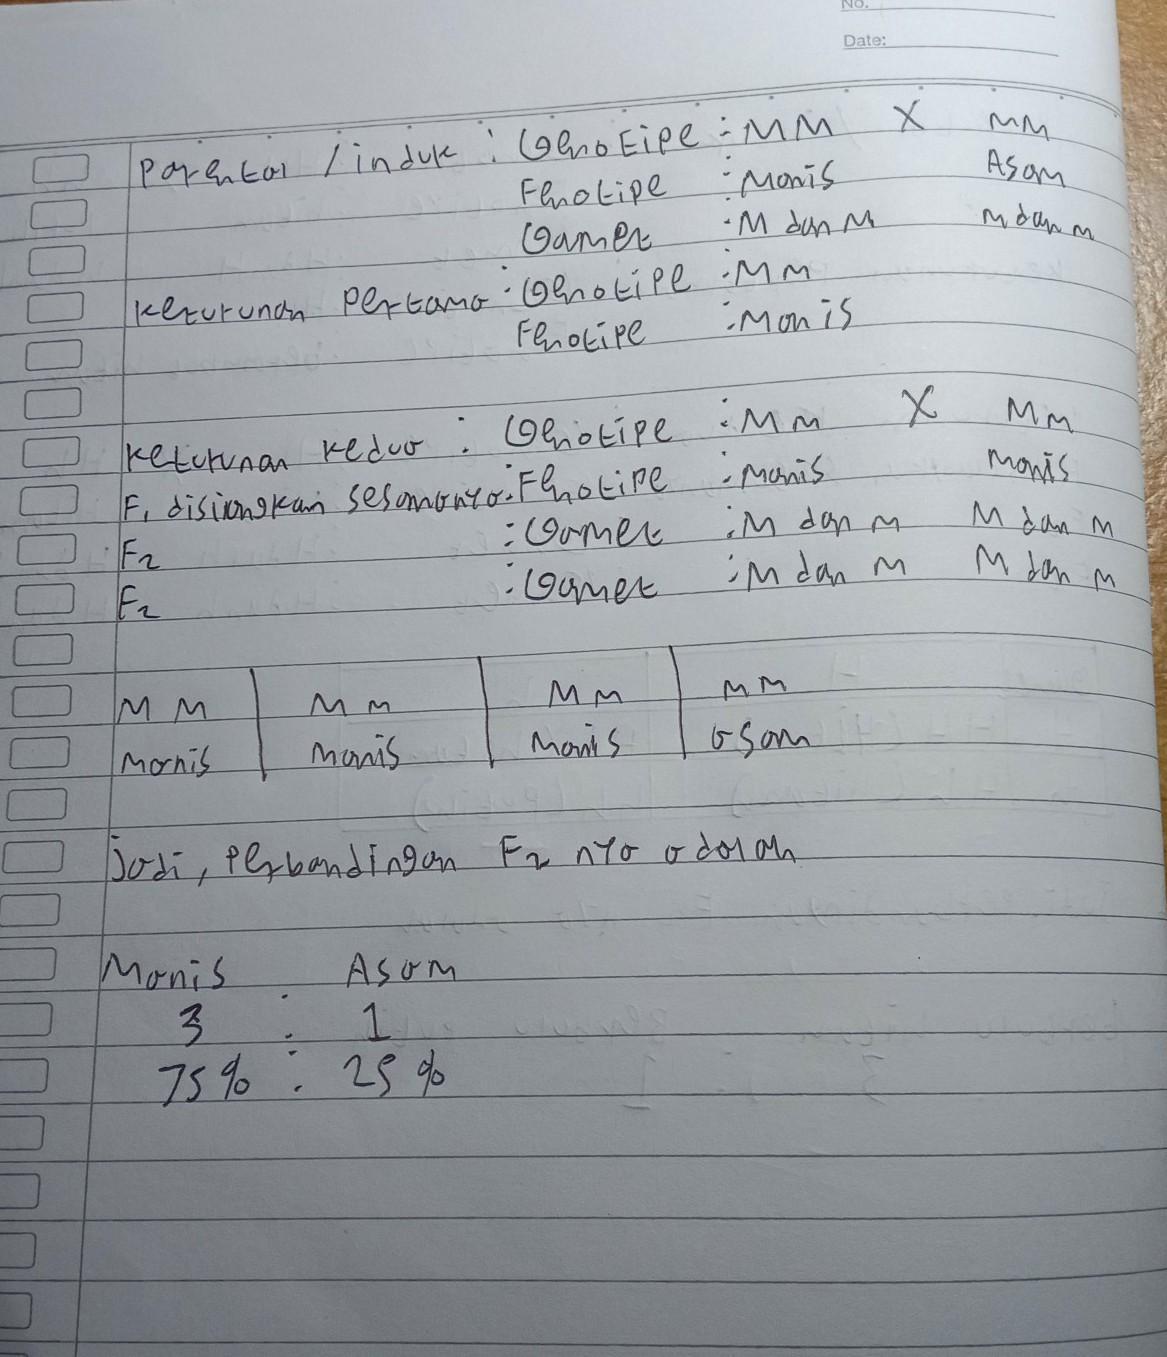 No.
Date:
Parental / induk : Genotipe : MM X mm
Fenotipe : Manis Asam
Gamet : M dan M m dan m
keturunan pertama : Genotipe : Mm
Fenotipe : Manis
keturunan kedua : Genotipe : Mm X Mm
F1 disiangkan sesamanya : Fenotipe : manis manis
F2 : Gamet : M dan m M dan m
F2 : Gamet : M dan m M dan m
MM Mm Mm mm
manis manis manis asam
jadi, perbandingan F2 nya adalah
Manis : Asam
3 : 1
75% : 25%